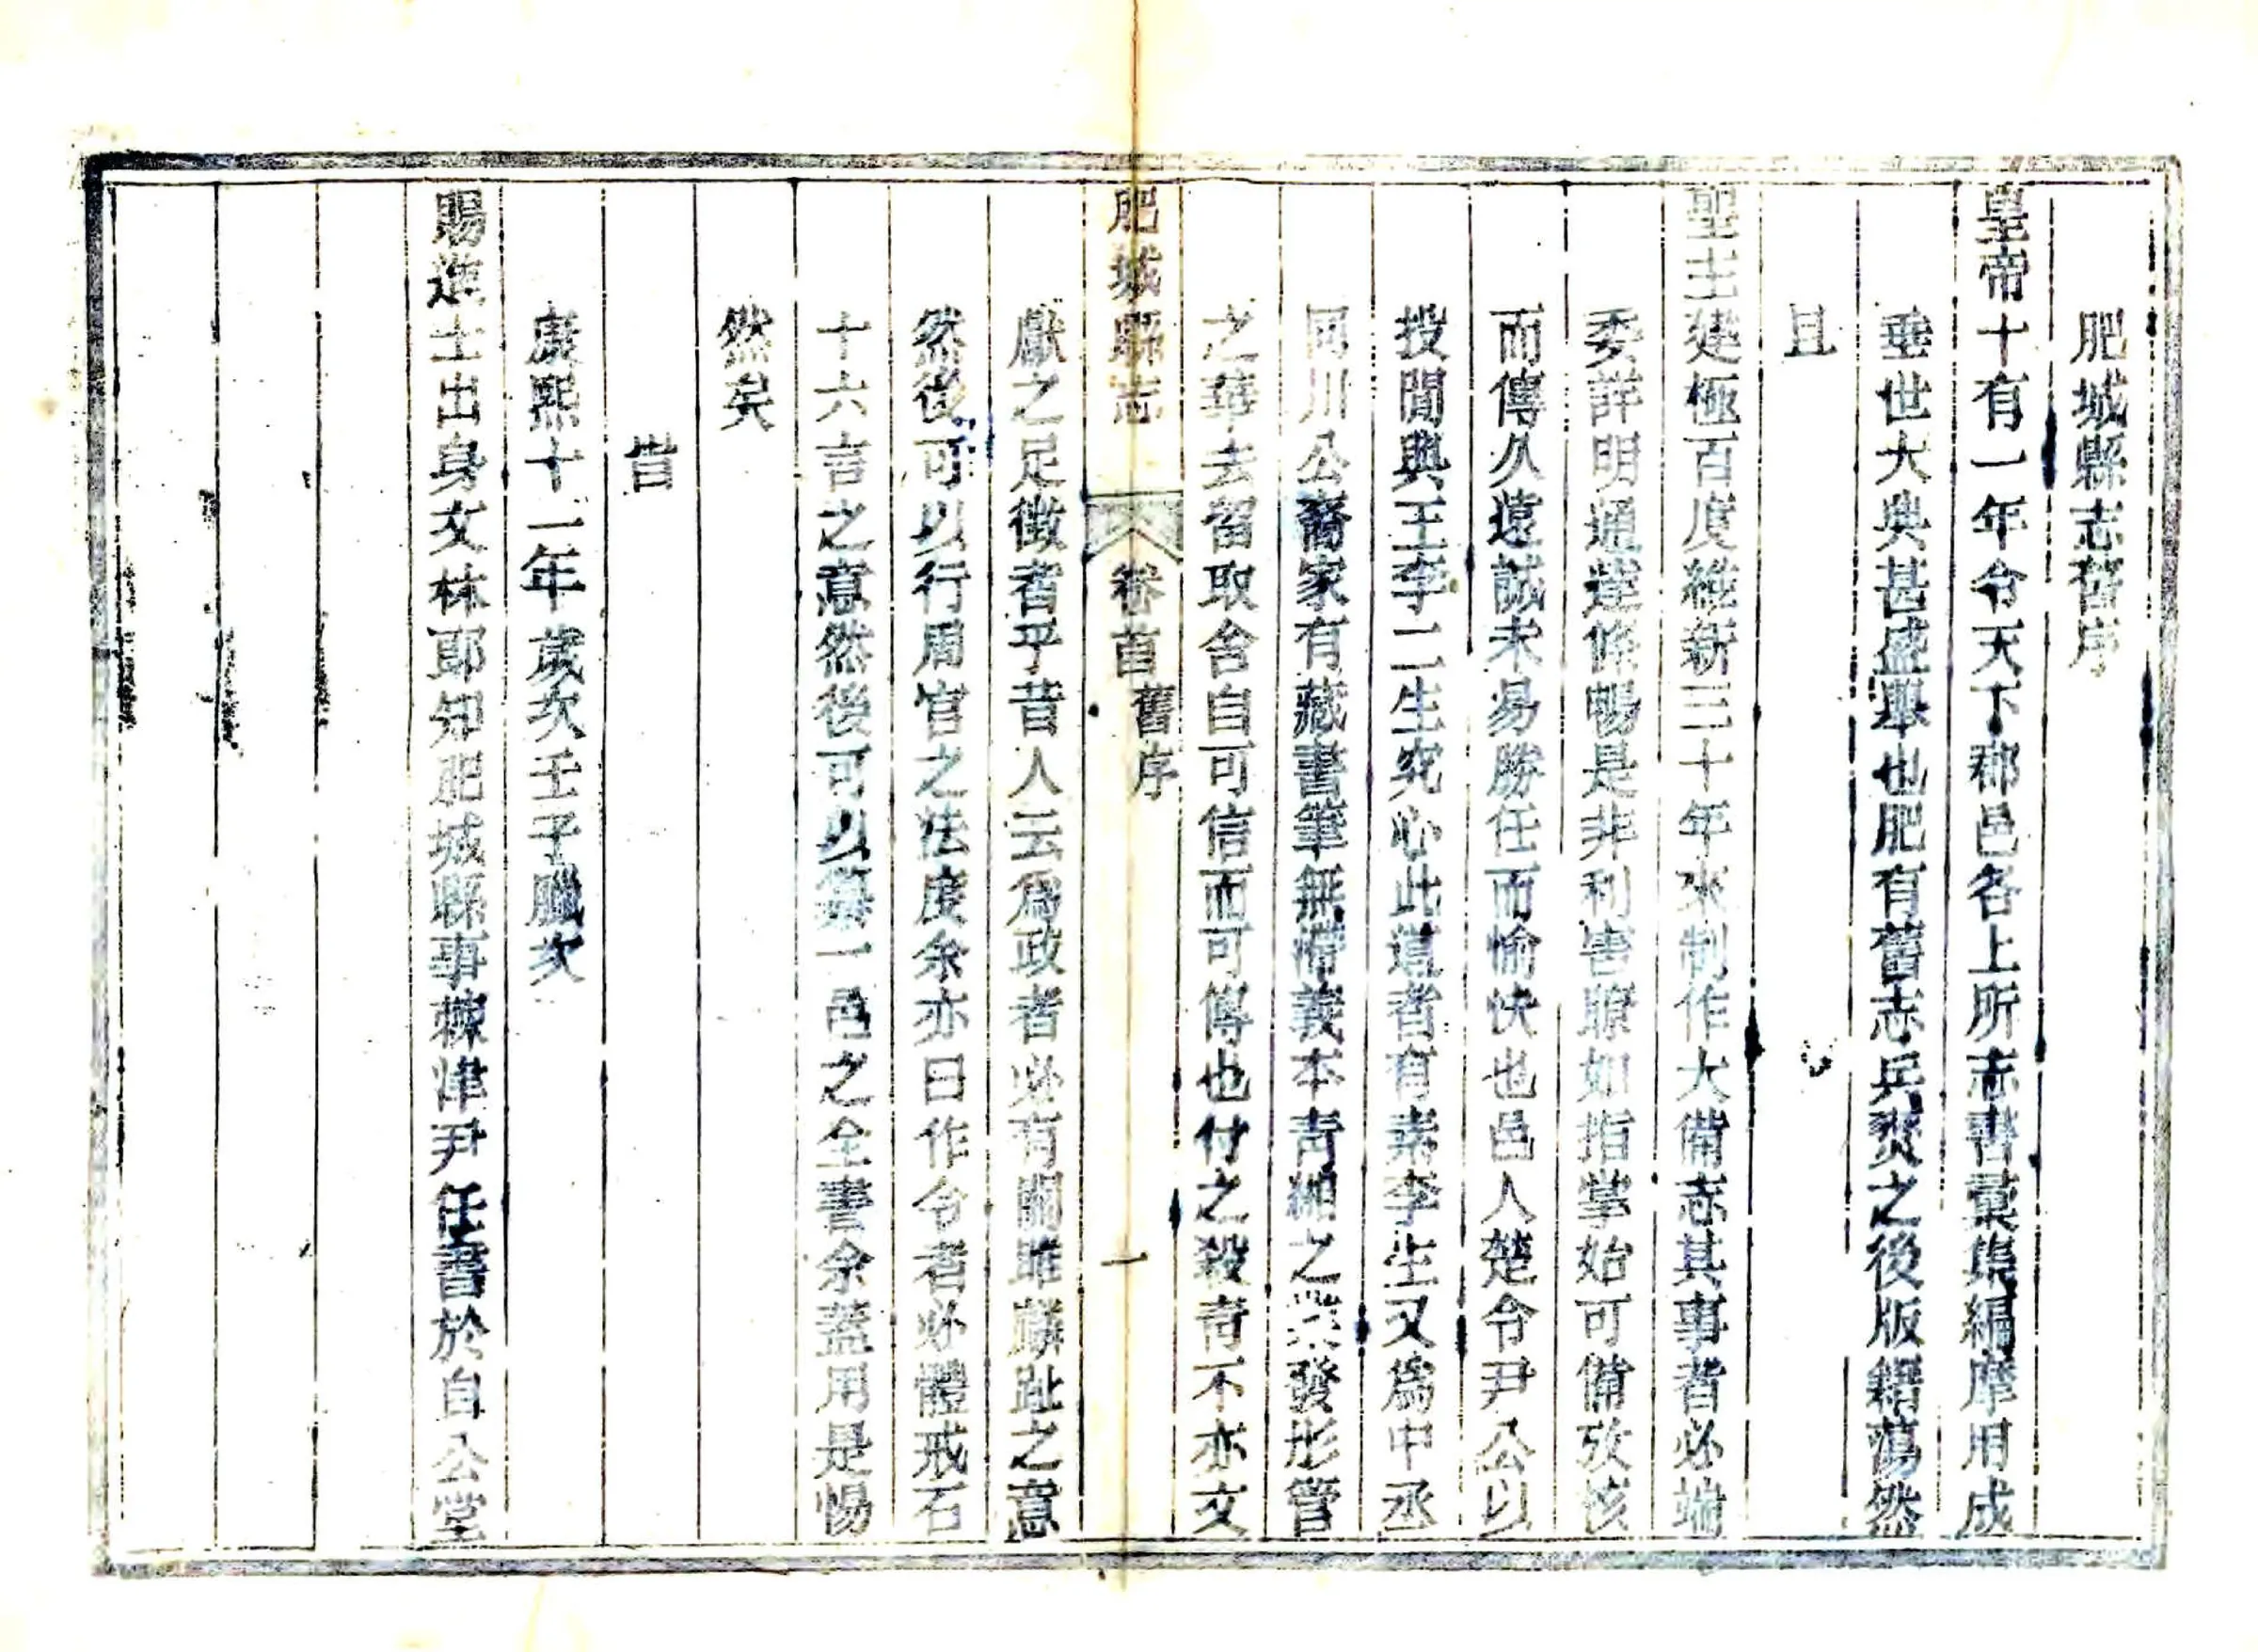 肥城縣志舊序
皇帝十有一年令天下郡邑各上所志書彙集編摩用成
垂世大典甚盛舉也肥有舊志兵燹之後版籍蕩然
且
聖主建極百度維新三十年來制作大備志其事者必端
委詳明通達條暢是非利害瞭如指掌始可備攷核
而傳久遠誠未易勝任而愉快也邑人楚令尹公以
投閒與王李二生究心此道者有素李生又爲中丞
同川公裔家有藏書筆無滯義本青緗之業發彤管
之華去留取舍自可信而可傳也付之殺青不亦文
肥城縣志 卷首 舊序 一
獻之足徵者乎昔人云爲政者必有關雎麟趾之意
然後可以行周官之法度余亦曰作令者必體戒石
十六言之意然後可以纂一邑之全書余葢用是惕
然矣
旹
康熙十一年歲次壬子臘次
賜進士出身文林郎知肥城縣事棘津尹任書於自公堂